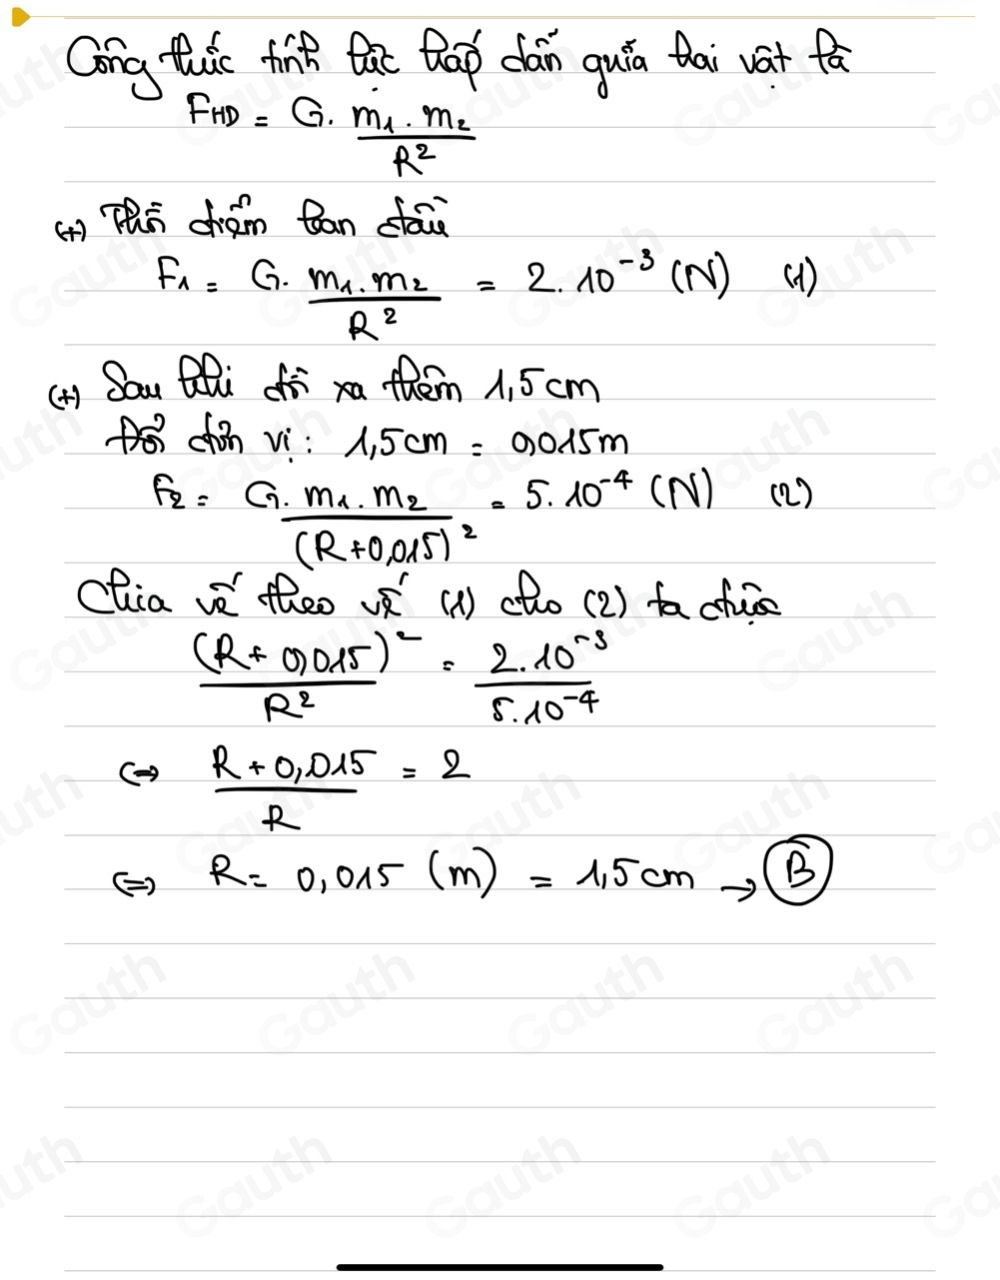 Công thức tính lực hấp dẫn giữa hai vật là
FHD = G. m1 . m2 / R²
(+) Thời điểm ban đầu
F1 = G. m1 . m2 / R² = 2. 10⁻³ (N) (1)
(+) Sau khi dời xa thêm 1,5 cm
Đổi đơn vị : 1,5 cm = 0,015 m
F2 = G. m1 . m2 / (R+0,015)² = 5. 10⁻⁴ (N) (2)
Chia vế theo vế (1) cho (2) ta được
(R + 0,015)² / R² = 2. 10⁻³ / 5. 10⁻⁴
⇔ R + 0,015 / R = 2
⇔ R = 0,015 (m) = 1,5 cm → B
Gauth